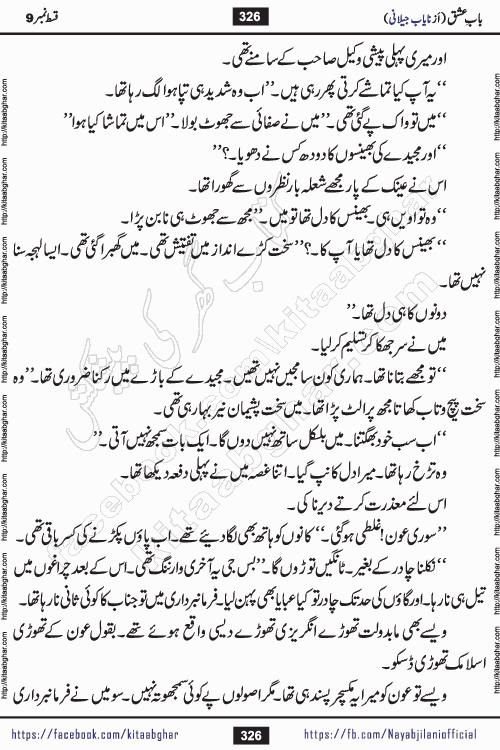 باب عشق (از نایاب جیلانی)
326
قسط نمبر 9
اور میری پہلی پیشی وکیل صاحب کے سامنے تھی۔
‘‘یہ آپ کیا تماشے کرتی پھر رہی ہیں۔’’اب وہ شدید ہی تپا ہوا لگ رہا تھا۔
‘‘میں تو واک پے گئی تھی۔’’میں نے صفائی سے جھوٹ بولا۔’’اس میں تماشا کیا ہوا’’
‘‘اور مجیدے کی بھینسوں کا دودھ کس نے دھویا۔؟’’
اس نے عینک کے پار مجھے شعلہ بار نظروں سے گھورا تھا۔
‘‘وہ تو اویں ہی۔بھینس کا دل تھا تو میں۔’’مجھ سے جھوٹ ہی نا بن پڑا۔
‘‘بھینس کا دل تھا یا آپ کا۔؟’’سخت کڑے انداز میں تفتیش تھی۔میں گھبرا گئی تھی۔ایسا لہجہ سنا
نہیں تھا۔
دونوں کا ہی دل تھا۔’’
میں نے سر جھکا کر تسلیم کر لیا۔
‘‘تو مجھے بتانا تھا۔ہماری کون سا مجیں نہیں تھیں۔مجیدے کے باڑے میں رکنا ضروری تھا۔’’وہ
سخت پیچ و تاب کھاتا مجھ پر الٹ پڑا تھا۔میں سخت پشیمان نیر بہا رہی تھی۔
‘‘اب سب خود بھگتنا۔میں بلکل ساتھ نہیں دوں گا۔ایک بات سمجھ نہیں آتی۔’’
وہ تڑخ رہا تھا۔میرا دل کانپ گیا۔اتنا غصہ میں نے پہلی دفعہ دیکھا تھا۔
اس لئے معذرت کرتے دیر نا کی۔
’’سوری عون!غلطی ہو گئی۔‘‘کانوں کو ہاتھ بھی لگا دیئے تھے۔اب پاؤں پکڑنے کی کسر باقی تھی۔
‘‘نکلنا چادر کے بغیر۔ٹانگیں توڑوں گا۔’’بس جی یہ آخری وارننگ تھی۔اس کے بعد چراغوں میں
تیل ہی نا رہا۔اور گاؤں کی حد تک چادر تو کیا عبایا بھی پہن لیا۔فرمانبرداری میں تو جناب کا کوئی ثانی نا رہا تھا۔
ویسے بھی مابدولت تھوڑے انگریزی تھوڑے دیسی واقع ہوئے تھے۔بقول عون کے تھوڑی
اسلامک تھوڑی ڈسکو۔
ویسے تو عون کو میرا یہ مکسچر پسند ہی تھا۔مگر اصولوں پے کوئی سمجھوتہ نہیں۔سو میں نے فرمانبرداری
https://facebook.com/kitaabghar
326
https://fb.com/Nayabjilaniofficial
http://kitaabghar.com
کتاب گھر کی پیشکش
facebook.com/kitaabghar
kitaabghar.com